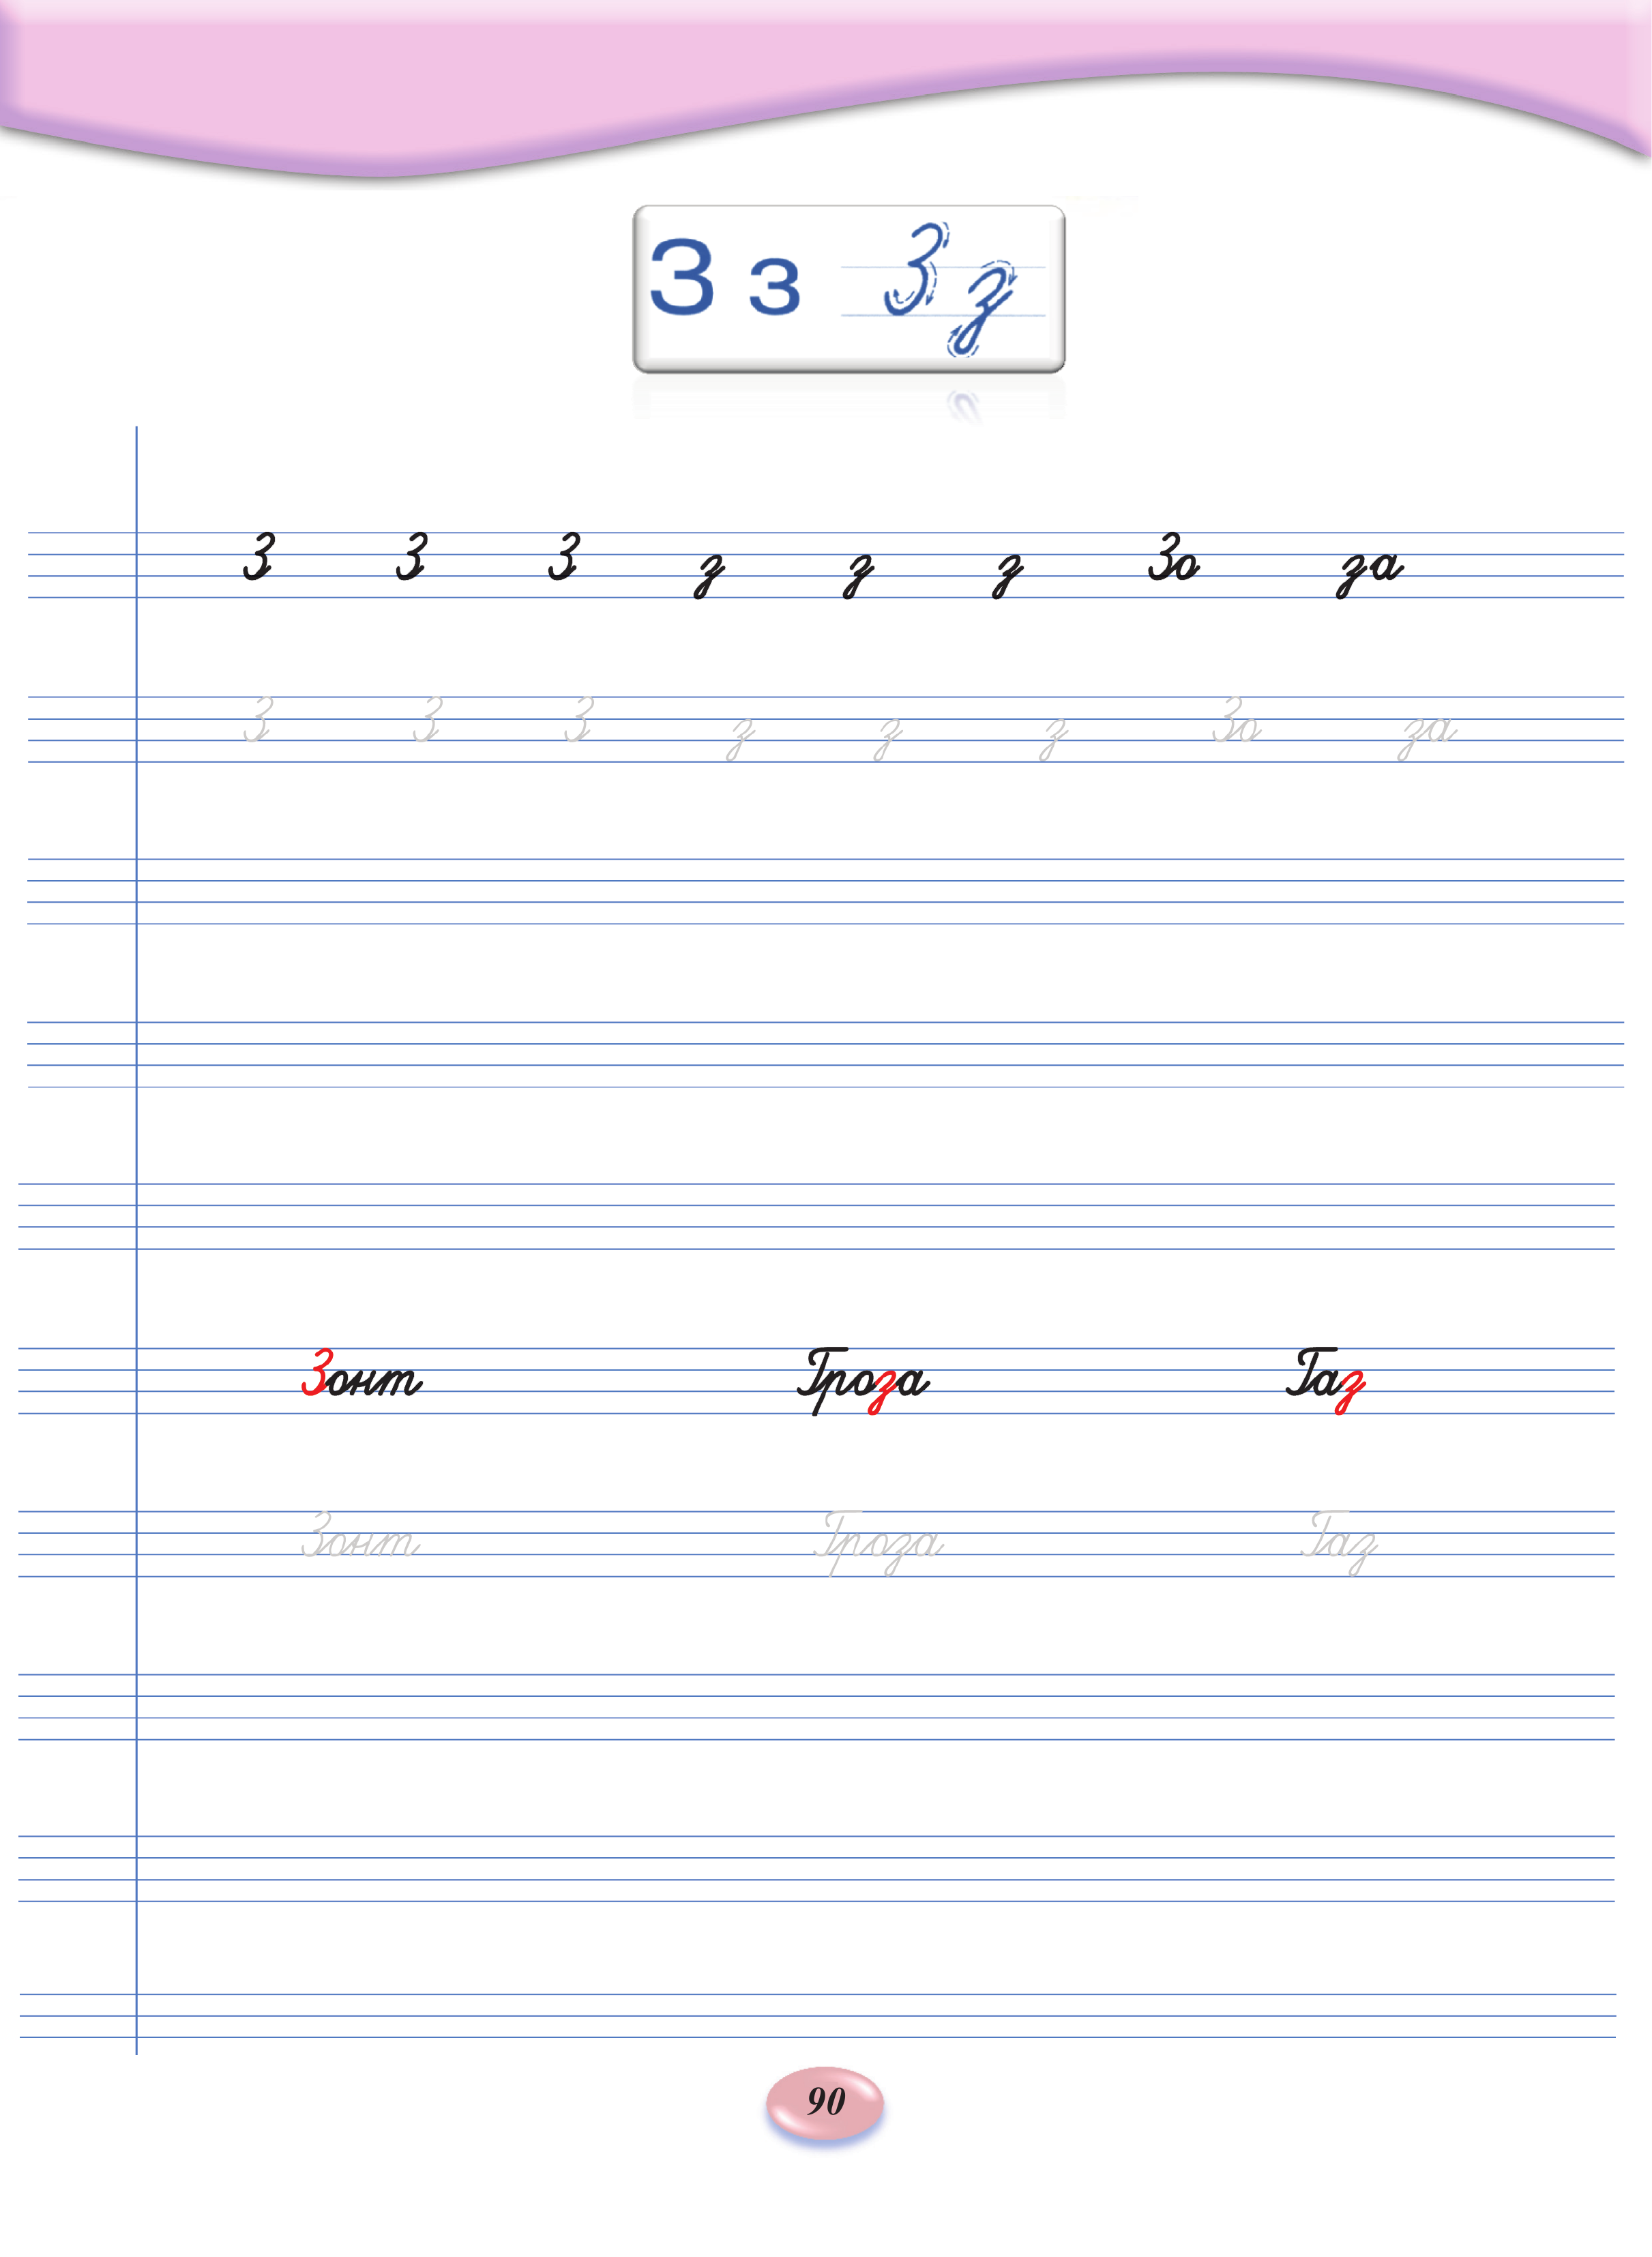 З з З з
З З З з з з Зо за
З З З з з з Зо за
Зонт Гроза Газ
Зонт Гроза Газ
90